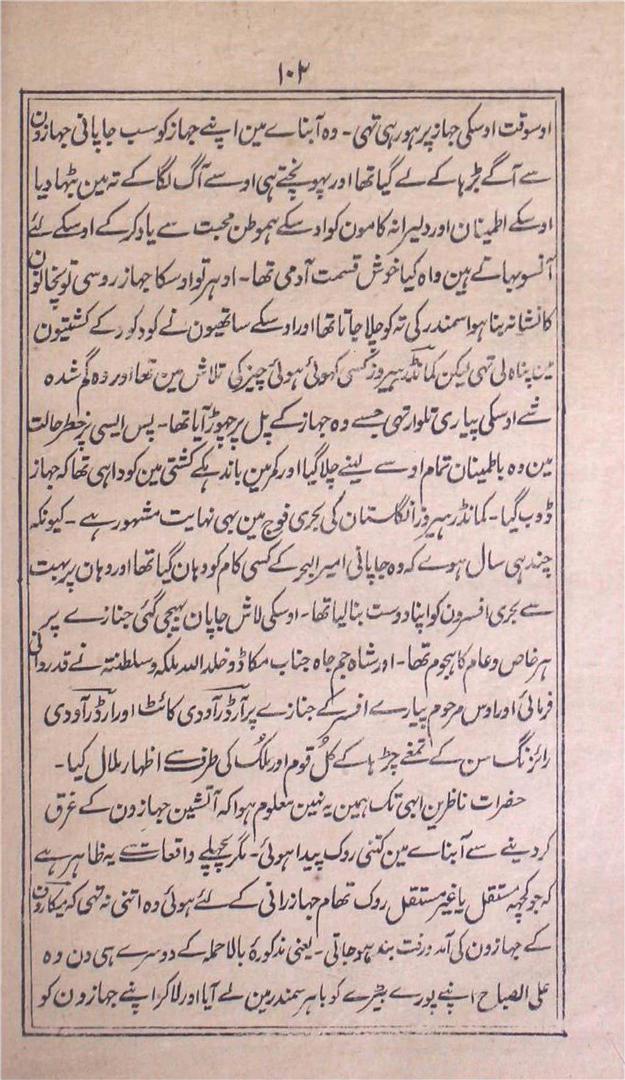 ۱۰۳
اوسوقت اوسکی جہاز پر ہو رہی تہی - وہ آبناے مین اپنے جہاز کو سب جاپانی جہازون
سے آگے بڑہا کے لے گیا تھا اور پہونچتے ہی اوسے آگ لگا کے تہ مین بٹہا دیا
اوسکے اطمینان اور دلیرانہ کامون کو اوسکے ہموطن محبت سے یاد کر کے اوسکے لئے
آنسو بہاتے ہین واہ کیا خوش قسمت آدمی تھا - اودہر تو اوسکا جہاز روسی توپخانون
کا نشانہ بنا ہوا سمندر کی تہ کو چلا جاتا تھا اور اوسکے ساتھیون نے کود کود کے کشتیون
مین پناہ لی تہی لیکن کمانڈر ہیروز کسی کہوئی ہوئی چیز کی تلاش مین تھا اور وہ گم شدہ
شے اوسکی پیاری تلوار تہی جسے وہ جہاز کے پل پر چہوڑ آیا تھا - پس ایسی پرخطر حالت
مین وہ باطمینان تمام اوسے لینے چلا گیا اور کمر مین باندہکے کشتی مین کودا ہی تھا کہ جہاز
ڈوب گیا - کمانڈر ہیروز انگلستان کی بحری فوج مین بہی نہایت مشہور ہے - کیونکہ
چند ہی سال ہوے کہ وہ جاپانی امیر البحر کے کسی کام کو وہان گیا تھا اور وہان پر بہت
سے بحری افسرون کو اپنا دوست بنا لیا تھا - اوسکی لاش جاپان بہیجی گئی جنازے پر
ہر خاص و عام کا ہجوم تھا - اور شاہ جم جاہ جناب مکاڈو خلد اللہ ملکہ و سلطنتہ نے قدردانی
فرمائی اور اوس مرحوم پیارے افسر کے جنازے پر آرڈر آو دی کائٹ اور ارڈر آو دی
رائزنگ سن کے تمغے چڑہا کے کل قوم اور ملک کی طرف سے اظہار ملال کیا -
حضرات ناظرین ابہی تک ہمین یہ نہین معلوم ہوا کہ آتشین جہازون کے غرق
کر دینے سے آبناے مین کتنی روک پیدا ہوئی - مگر پچہلے واقعات سے یہ ظاہر ہے
کہ جو کچہہ مستقل یا غیر مستقل روک تھام جہازرانی کے لئے ہوئی وہ اتنی نہ تہی کہ میکارون
کے جہازون کی آمد و رفت بند ہو جاتی - یعنی مذکورۂ بالا حملہ کے دوسرے ہی دن وہ
علی الصباح اپنے پورے بیڑے کو باہر سمندر مین لے آیا اور لاکر اپنے جہازون کو